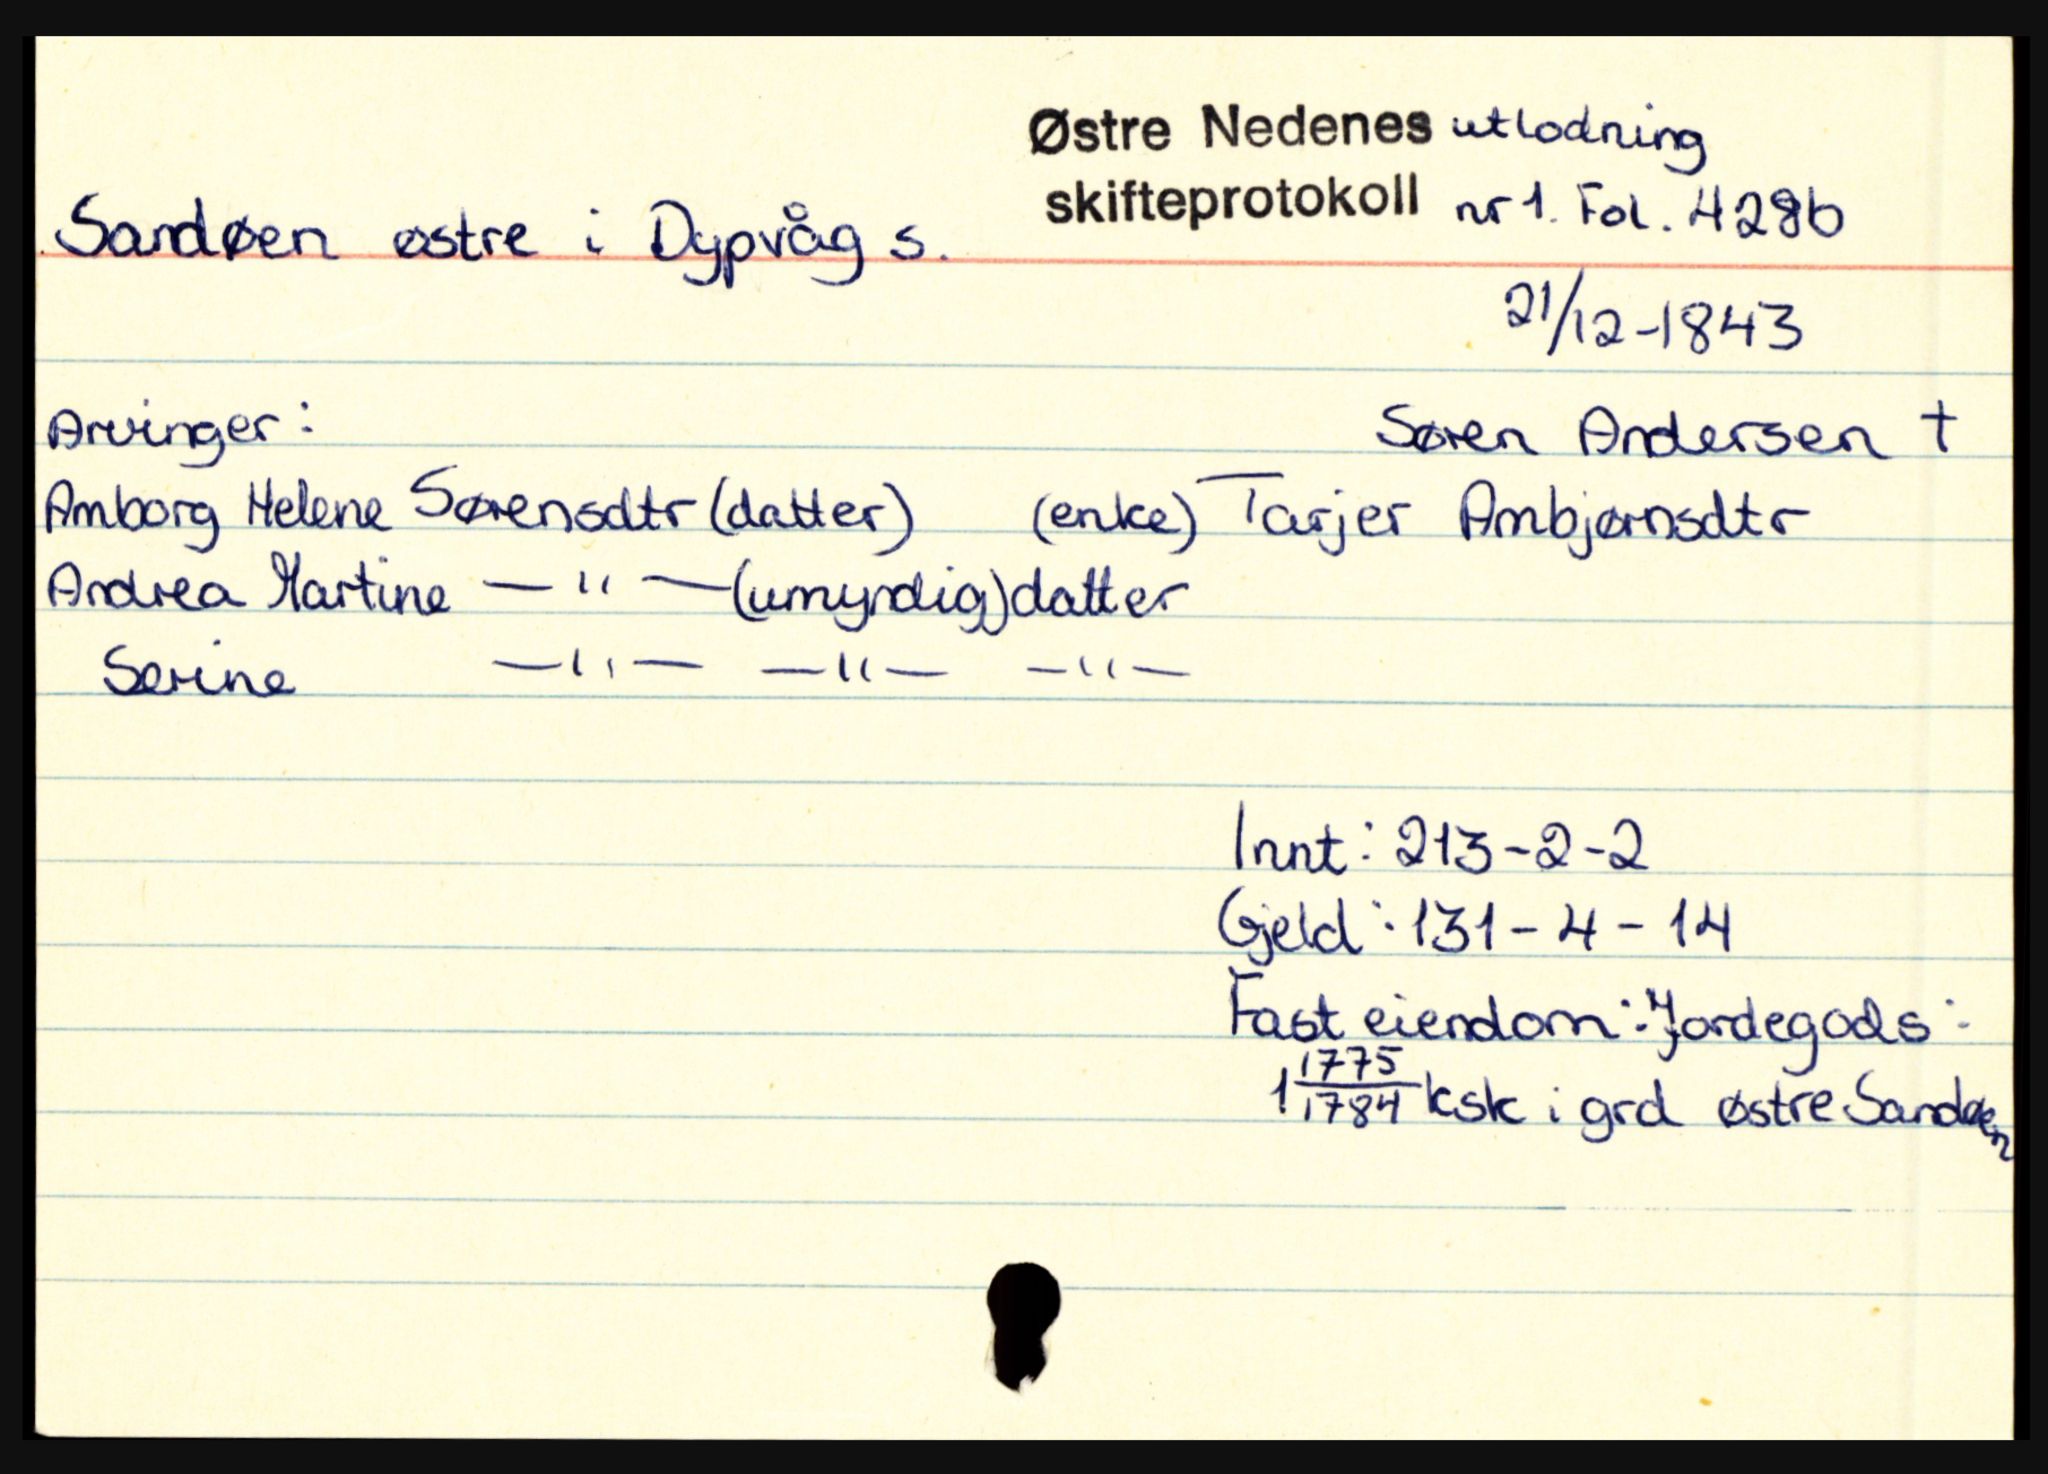 Østre Nedenes utlodning
skifteprotokoll nr 1. Fol. 428b
Sandøen østre i Dypvåg s.
21/12-1843
Arvinger:
Søren Andersen †
Amborg Helene Sørensdtr (datter) (enke) Tarjer Ambjørnsdtr
Andrea Martine —"— (umyndig) datter
Serine —"— —"— —"—
Innt: 213-2-2
Gjeld: 131-4-14
Fast eiendom: Jordegods:
1 1775/1784 ksk i grd østre Sandøen